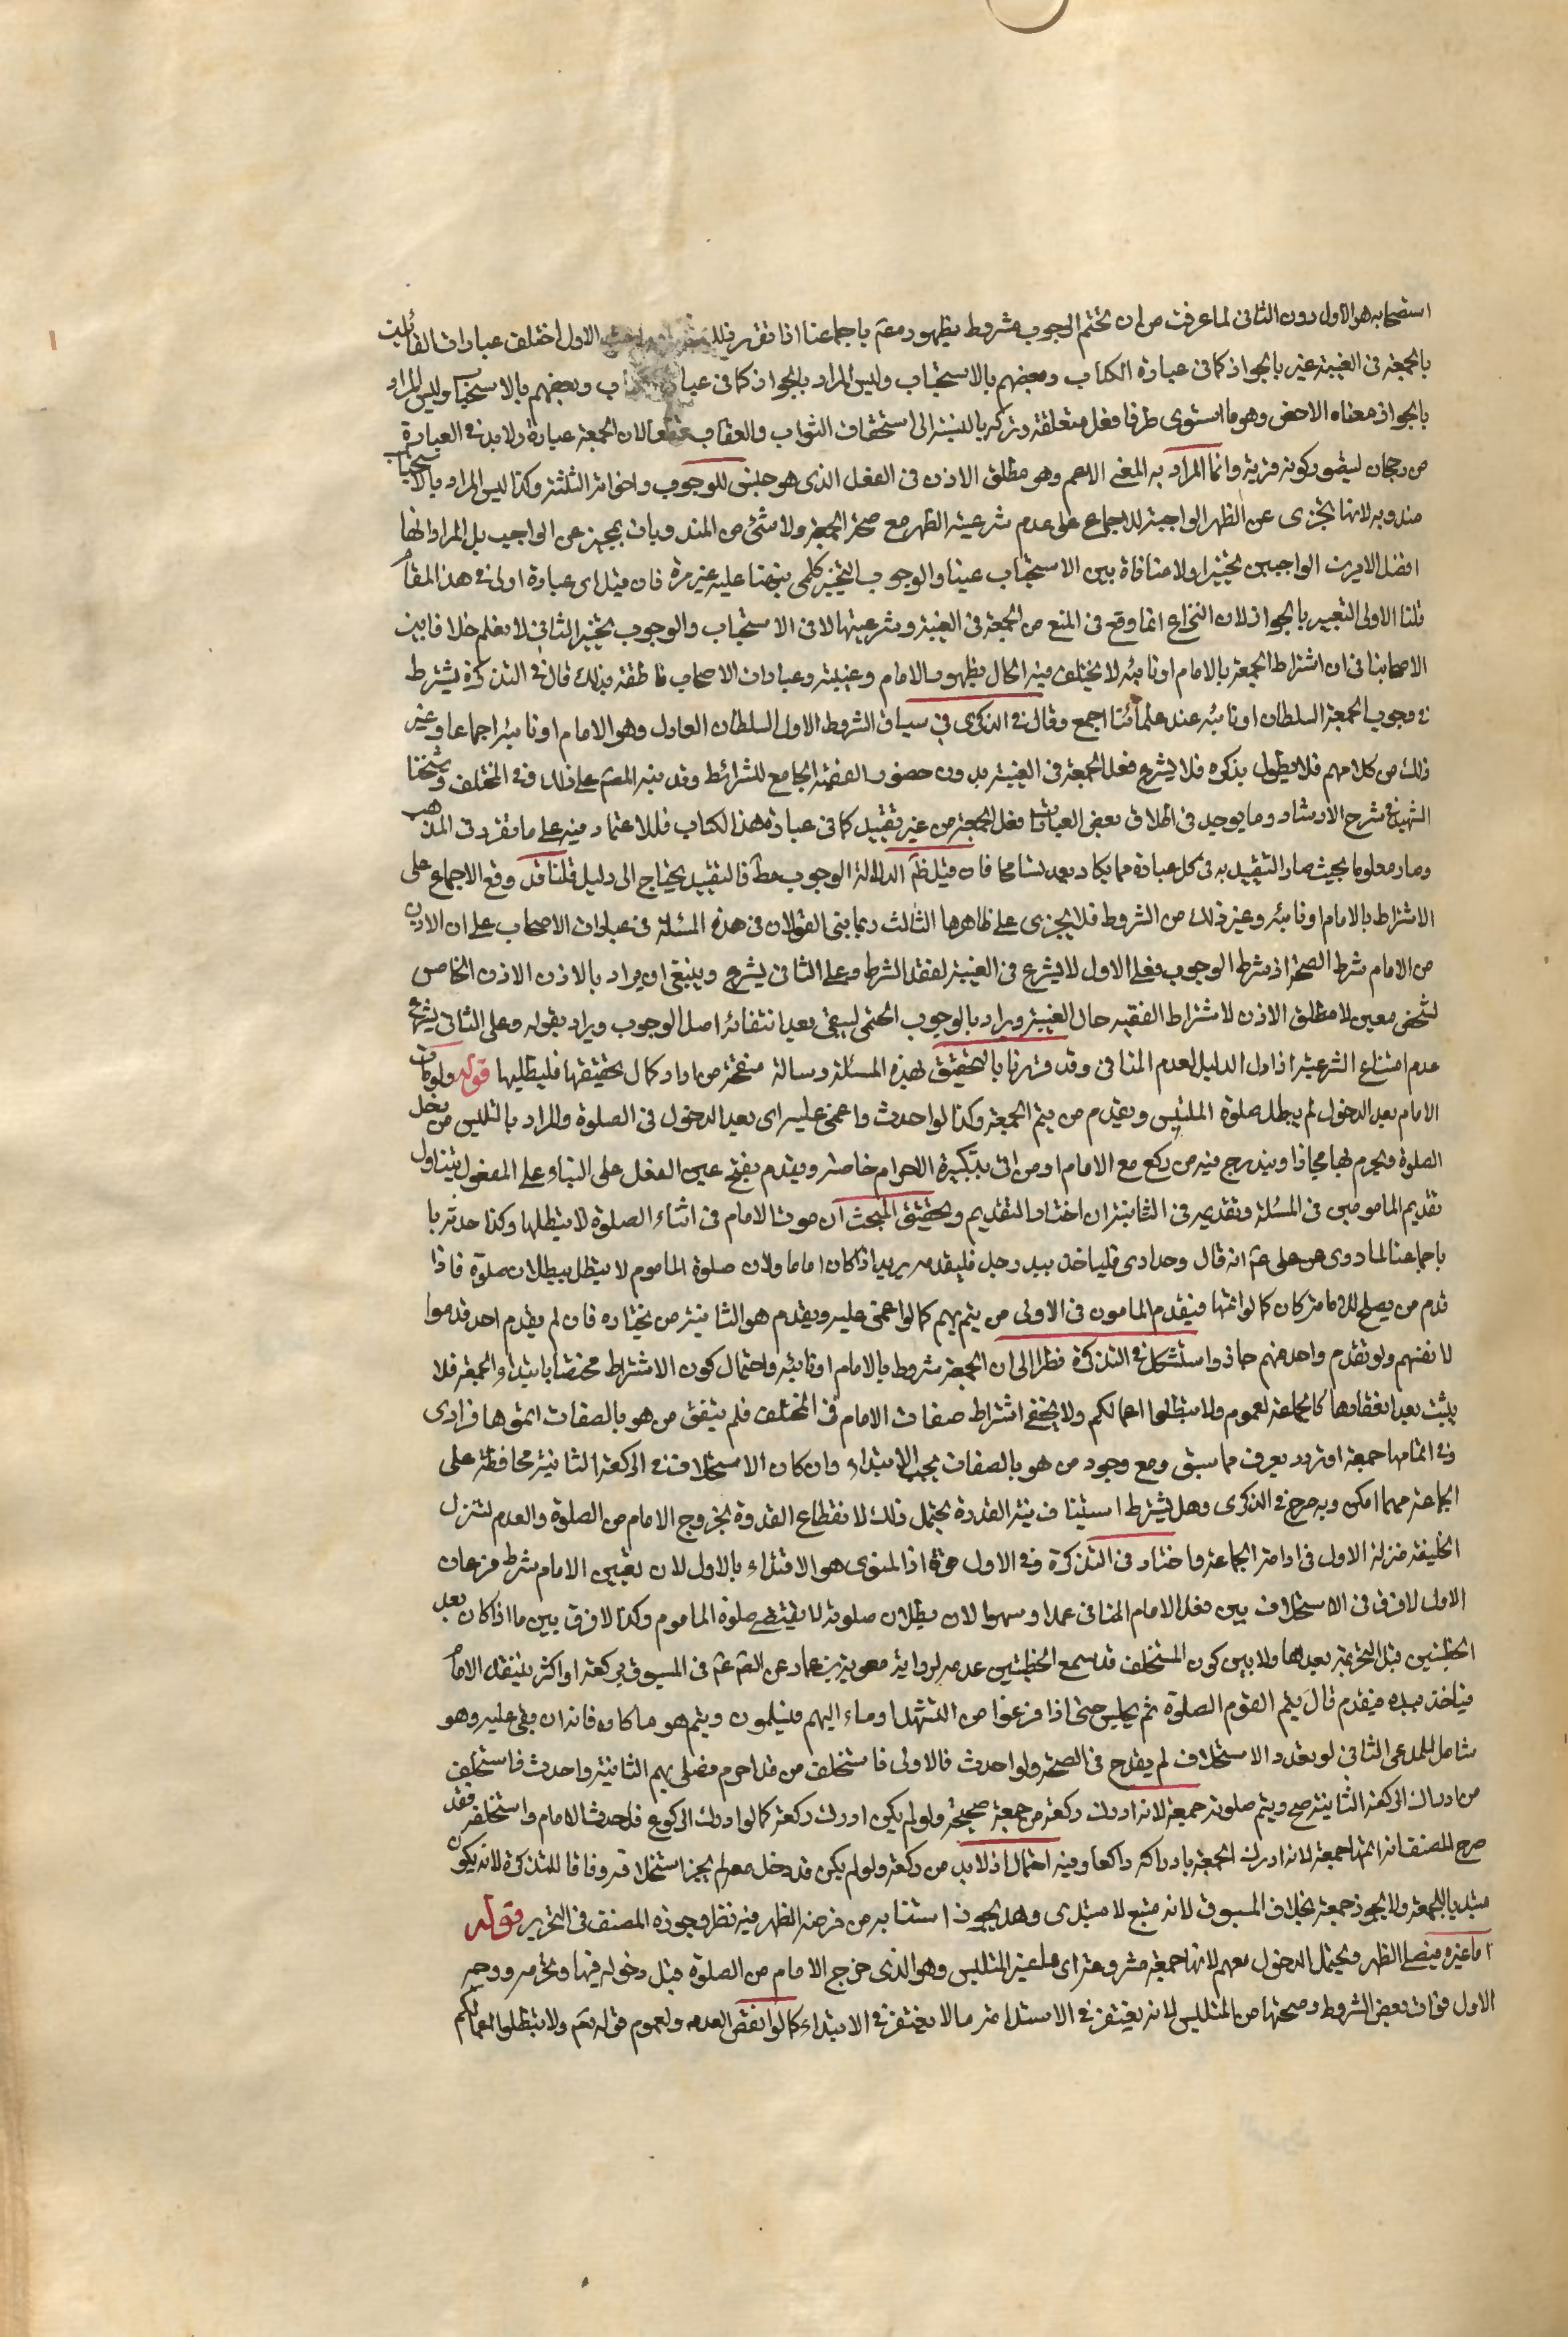 استصحابه هو الاول دون الثانى لما عرفت من ان تحتم الوجوب مشروط بظهوره عم باجماعنا اذا تقرر فلك الاول اختلف عبارات القائلين
بالجمعة فى الغيبة غير بالجواز كما فى عبارة الكتاب وبعضهم بالاستحباب وليس المراد بالجواز كما فى عبارة الكتاب وبعضهم بالاستحباب وليس المراد
بالجواز معناه الاخص وهو ما استوى طرفا فعل متعلقة وتركه بالنسبة الى استحقاق الثواب والعقاب لان الجمعة عبادة ولا بد فى العبادة
من رجحان ليتصور كونه قربة وانما المراد به المعنى الاعم وهو مطلق الاذن فى الفعل الذى هو جنس للوجوب واخواته الثلثة وكذا ليس المراد بالاستحباب
مندوبه لانها تجزى عن الظهر الواجبة للاجماع على عدم شرعية الظهر مع صحة الجمعة ولا شئ من المندوبات يجزئ عن الواجب بل المراد انها
افضل الامرين الواجبين تخييرا ولا منافاة بين الاستحباب عينا والوجوب التخييرى كلمى نبهنا عليه غير مرة فان قيل اى عبارة اولى فى هذا المقام
قلنا الاولى التعبير بالجواز لان النزاع انما وقع فى المنع من الجمعة فى الغيبة وشرعيتها لا فى الاستحباب والوجوب تخييرا الثانى لا نعلم خلافا بين
الاصحابنا فى ان اشتراط الجمعة بالامام او نائبه لا يختلف فيه الحال بظهور الامام وغيبته وعبارات الاصحاب ناطقة بذلك قال فى التذكرة يشترط
فى وجوب الجمعة السلطان او نائبه عند علمائنا اجمع وقال فى الذكرى فى سياق الشروط الاول السلطان العادل وهو الامام او نائبه اجماعا وغير
ذلك من كلامهم فلا يطول بذكره فلا يشرع فعل الجمعة فى الغيبة بدون حضور الفقيه الجامع للشرائط وقد نبه المصم على ذلك فى المختلف وشيخنا
الشهيد فى شرح الارشاد وما يوجد فى اطلاق بعض العبارات فعل الجمعة من غير تقييد كما فى عبارة هذا الكتاب فللاعتماد فيه على ما تقرر فى المذهب
وصار معلوما بحيث صار التقييد به فى كل عبارة مما يكاد يعد تسامحا فان قيل ظم الدلالة الوجوب مطلقا فالتقييد يحتاج الى دليل قلنا قد وقع الاجماع على
الاشتراط بالامام او نائبه وغير ذلك من الشروط فلا يجزى على ظاهرها الثالث ربما بنى القولان فى هذه المسئلة فى عبارات الاصحاب على ان الاذن
من الامام شرط الصحة او شرط الوجوب فعلى الاول لا يشرع فى الغيبة لفقد الشرط وعلى الثانى يشرع وينبغى ان يراد بالاذن الاذن الخاص
لشخص معين لا مطلق الاذن لاشتراط الفقيه حال الغيبة ويراد بالوجوب الحتمى ليبقى بعد انتفائه اصل الوجوب ويراد بقوله وعلى الثانى يشرع
عدم امتناع الشرعية اذا دل الدليل لعدم المنافى وقد افردنا بالتحقيق لهذه المسئلة رسالة منقحة من اراد كمال تحقيقها فليطلبها قوله ولو مات
الامام بعد الدخول لم يبطل صلوة المتلبس ويقدم من يتم الجمعة وكذا لو احدث واغمى عليه اى بعد الدخول فى الصلوة والمراد بالتلبس من دخل
الصلوة وتحرم بها مجازا ويندرج فيه من ركع مع الامام او من اتى بتكبيرة الاحرام خاصة ويقدم بفتح عين الفعل على البناء على المفعول ليتناول
تقديم المامومين فى المسئلة وتقديمه فى الثانية ان اختار التقديم وتحقيق المبحث ان موت الامام فى اثناء الصلوة لا يبطلها وكذا حدثه با
باجماعنا لما روى عن على عم انه قال وحد اذى فلياخذ بيد رجل فليقدمه يريد اذا كان اماما ولان صلوة الماموم لا يبطل ببطلان صلوة فاذا
قدم من يصلح للامامة كان كما لو اتمها فيقدم المامون فى الاولى من يتم بهم كما لو اغمى عليه ويقدم هو الثانية من يختاره فان لم يقدم احد قدموا
لانفسهم ولو تقدم واحد منهم جاز واستشكل فى التذكرة نظرا الى ان الجمعة مشروط بالامام او نائبه واحتمال كون الاشتراط مختصا بابتداء الجمعة فلا
يثبت بعد انعقادها كالجماعة لعموم ولا تبطلوا اعمالكم ولا يخفى اشتراط صفات الامام فى المختلف فلم يتفق من هو بالصفات اتموها فرادى
وفى اتمامها جمعة او ترود يعرف مما سبق ومع وجود من هو بالصفات يجب الابتداء وان كان الاستخلاف فى الركعة الثانية محافظة على
الجماعة مهما امكن وبه صرح فى الذكرى وهل يشترط استيناف نية القدوة يحتمل ذلك لانقطاع القدوة بخروج الامام من الصلوة والعدم لتنزل
الخليفة منزلة الاول فى ادامة الجماعة واختاره فى التذكرة وفى الاول قوة اذ المنوى هو الاقتداء بالاول لان تعيين الامام شرط فرعان
الاول لا فرق فى الاستخلاف بين فعل الامام المنافى عمدا وسهوا لان بطلان صلوته لا يقتضى صلوة الماموم وكذا لا فرق بين ما اذا كان بعد
الخطبتين قبل التحريمة بعدها ولا بين كون المستخلف قد سمع الخطبتين عدمه لرواية معوية بن عمار عن الصم عم فى المسبوق بركعة او اكثر يتنقل الامام
فياخذ بيده فيقدم قال يتم القوم الصلوة ثم يجلس حتى اذا فرغوا من التشهد اوماء اليهم فيسلمون ويتم هو ما كان فاته ان بقى عليه وهو
شامل للمدعى الثانى لو تعدد الاستخلاف لم يقدح فى الصحة ولو احدث فالاولى فاستخلف من قد احرم فصلى بهم الثانية واحدث فاستخلف
من ادراك الركعة الثانية صح ويتم صلوته جمعة لانه ادرك ركعة من جمعة صحيحة ولو لم يكن ادرك ركعة كما لو ادرك الركوع فاحدث الامام واستخلفه فقد
صرح المصنف انه اتمها جمعة لانه ادرك الجمعة بادراكه راكعا وفيه احتمال اذ لا بد من ركعة ولو لم يكن قد دخل معهم لم يجز استخلافه وفاقا للتذكرة لانه يكون
مبتدئا بالجمعة ولا يجوز جمعة بخلاف المسبوق لانه متبع لا مبتدى وهل يجوز استنابه من فرضه الظهر فيه نظر وجوزه المصنف فى التحرير قوله
اما غيره فيصلى الظهر ويحتمل الدخول معهم لانها جمعة مشروعة اى غير المتلبس وهو الذى خرج الامام من الصلوة قبل دخوله فيها وتحرمه ووجه
الاول فوات بعض الشروط وصحتها من المتلبس لانه يغتفر فى الاستدامة ما لا يغتفر فى الابتداء كما لو انفض العدد ولعموم قوله تعم ولا تبطلوا اعمالكم